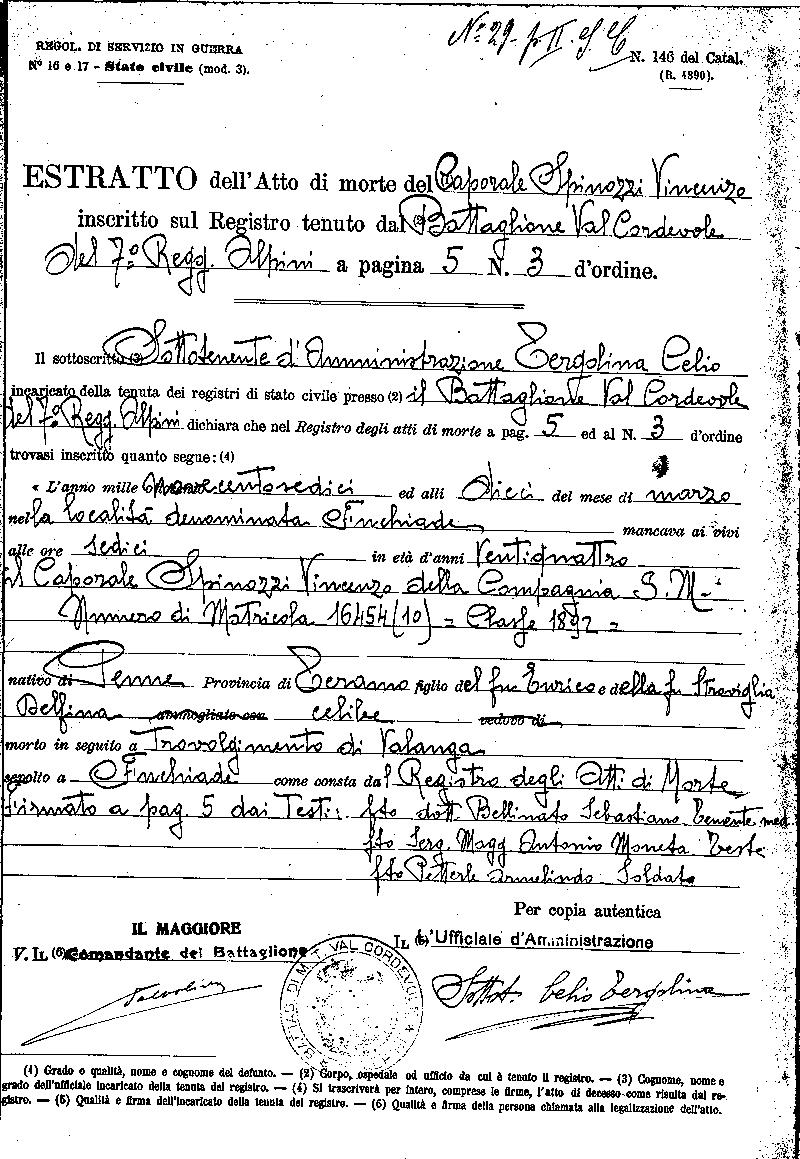 Nº 29. p. II. S. C
REGOL. DI SERVIZIO IN GUERRA
Nº 16 e 17 - Stato civile (mod. 3).
N. 146 del Catal.
(R. 1890).
ESTRATTO dell'Atto di morte del Caporale Spinozzi Vincenzo
inscritto sul Registro tenuto dal (2) Battaglione Val Cordevole
del 7º Regg. Alpini a pagina 5 N. 3 d'ordine.
Il sottoscritto (3) Sottotenente d'Amministrazione Tergolina Celio
incaricato della tenuta dei registri di stato civile presso (2) il Battaglione Val Cordevole
del 7º Regg. Alpini dichiara che nel Registro degli atti di morte a pag. 5 ed al N. 3 d'ordine
trovasi inscritto quanto segue: (4)
« L'anno mille novecentosedici ed alli dieci del mese di marzo
nella località denominata Finchiade mancava ai vivi
alle ore sedici in età d'anni Ventiquattro
il Caporale Spinozzi Vincenzo della Compagnia S. M.
Numero di Matricola 16454 (10) = Classe 1892 =
nativo di Penne Provincia di Teramo figlio del fu Enrico e della fu Stroviglia
Delfina ammogliato con celibe vedovo di
morto in seguito a Travolgimento di Valanga
sepolto a Finchiade come consta dal Registro degli Atti di Morte
firmato a pag. 5 dai Testi: fto dott Bellinato Sebastiano Tenente med.
fto Serg. Magg Antonio Moneta Teste
fto Petterle Armelindo Soldato
Per copia autentica
IL MAGGIORE
V. IL (6) Comandante del Battaglione
IL (5) l'Ufficiale d'Amministrazione
BATTAG. DI M. T. VAL CORDEVOLE
Sottot. Celio Tergolina
(1) Grado o qualità, nome e cognome del defunto. — (2) Corpo, ospedale od ufficio da cui è tenuto il registro. — (3) Cognome, nome e
grado dell'ufficiale incaricato della tenuta del registro. — (4) Si trascriverà per intero, comprese le firme, l'atto di decesso come risulta dal re-
gistro. — (5) Qualità e firma dell'incaricato della tenuta del registro. — (6) Qualità e firma della persona chiamata alla legalizzazione dell'atto.